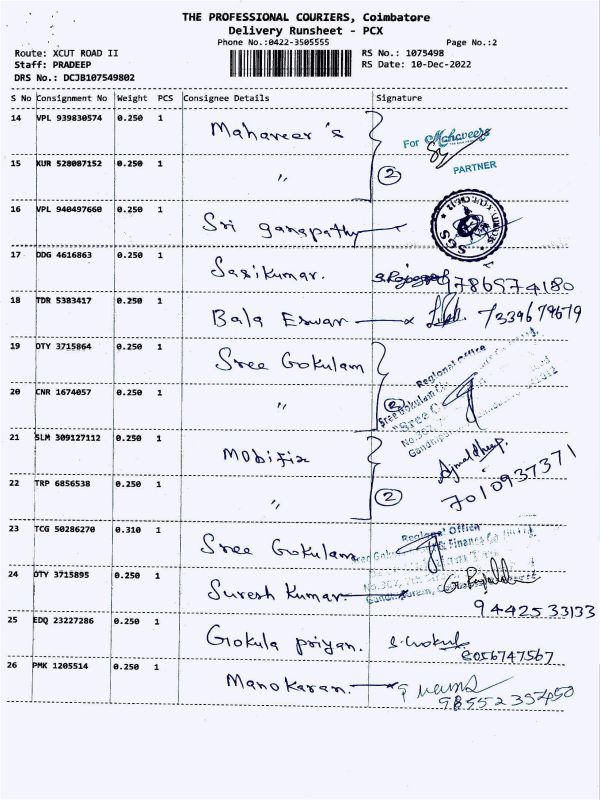 THE PROFESSIONAL COURIERS, Coimbatore
Delivery Runsheet - PCX
Phone No.:0422-3505555 Page No.:2
Route: XCUT ROAD II RS No.: 1075498
Staff: PRADEEP RS Date: 10-Dec-2022
DRS No.: DCJB107549802
S No Consignment No Weight PCS Consignee Details Signature
14 VPL 939830574 0.250 1 Mahaveer's For Mahaveers
PARTNER
15 KUR 528087152 0.250 1 〃 2
16 VPL 940497660 0.250 1 Sri ganapathy SGS
17 DDG 4616863 0.250 1 Sasikumar. 9786974180
18 TDR 5383417 0.250 1 Bala Eswar 7339679679
19 DTY 3715864 0.250 1 Sree Gokulam Regional Office
20 CNR 1674057 0.250 1 〃 2 Sree Gokulam
21 SLM 309127112 0.250 1 Mobifix
22 TRP 6856538 0.250 1 〃 2 7010937371
23 TCG 50286270 0.310 1 Sree Gokulam Regional Office
& Finance Co
24 DTY 3715895 0.250 1 Suresh Kumar. 9442533133
25 EDQ 23227286 0.250 1 Gokula priyan. 8056747567
26 PMK 1205514 0.250 1 Manokaran.